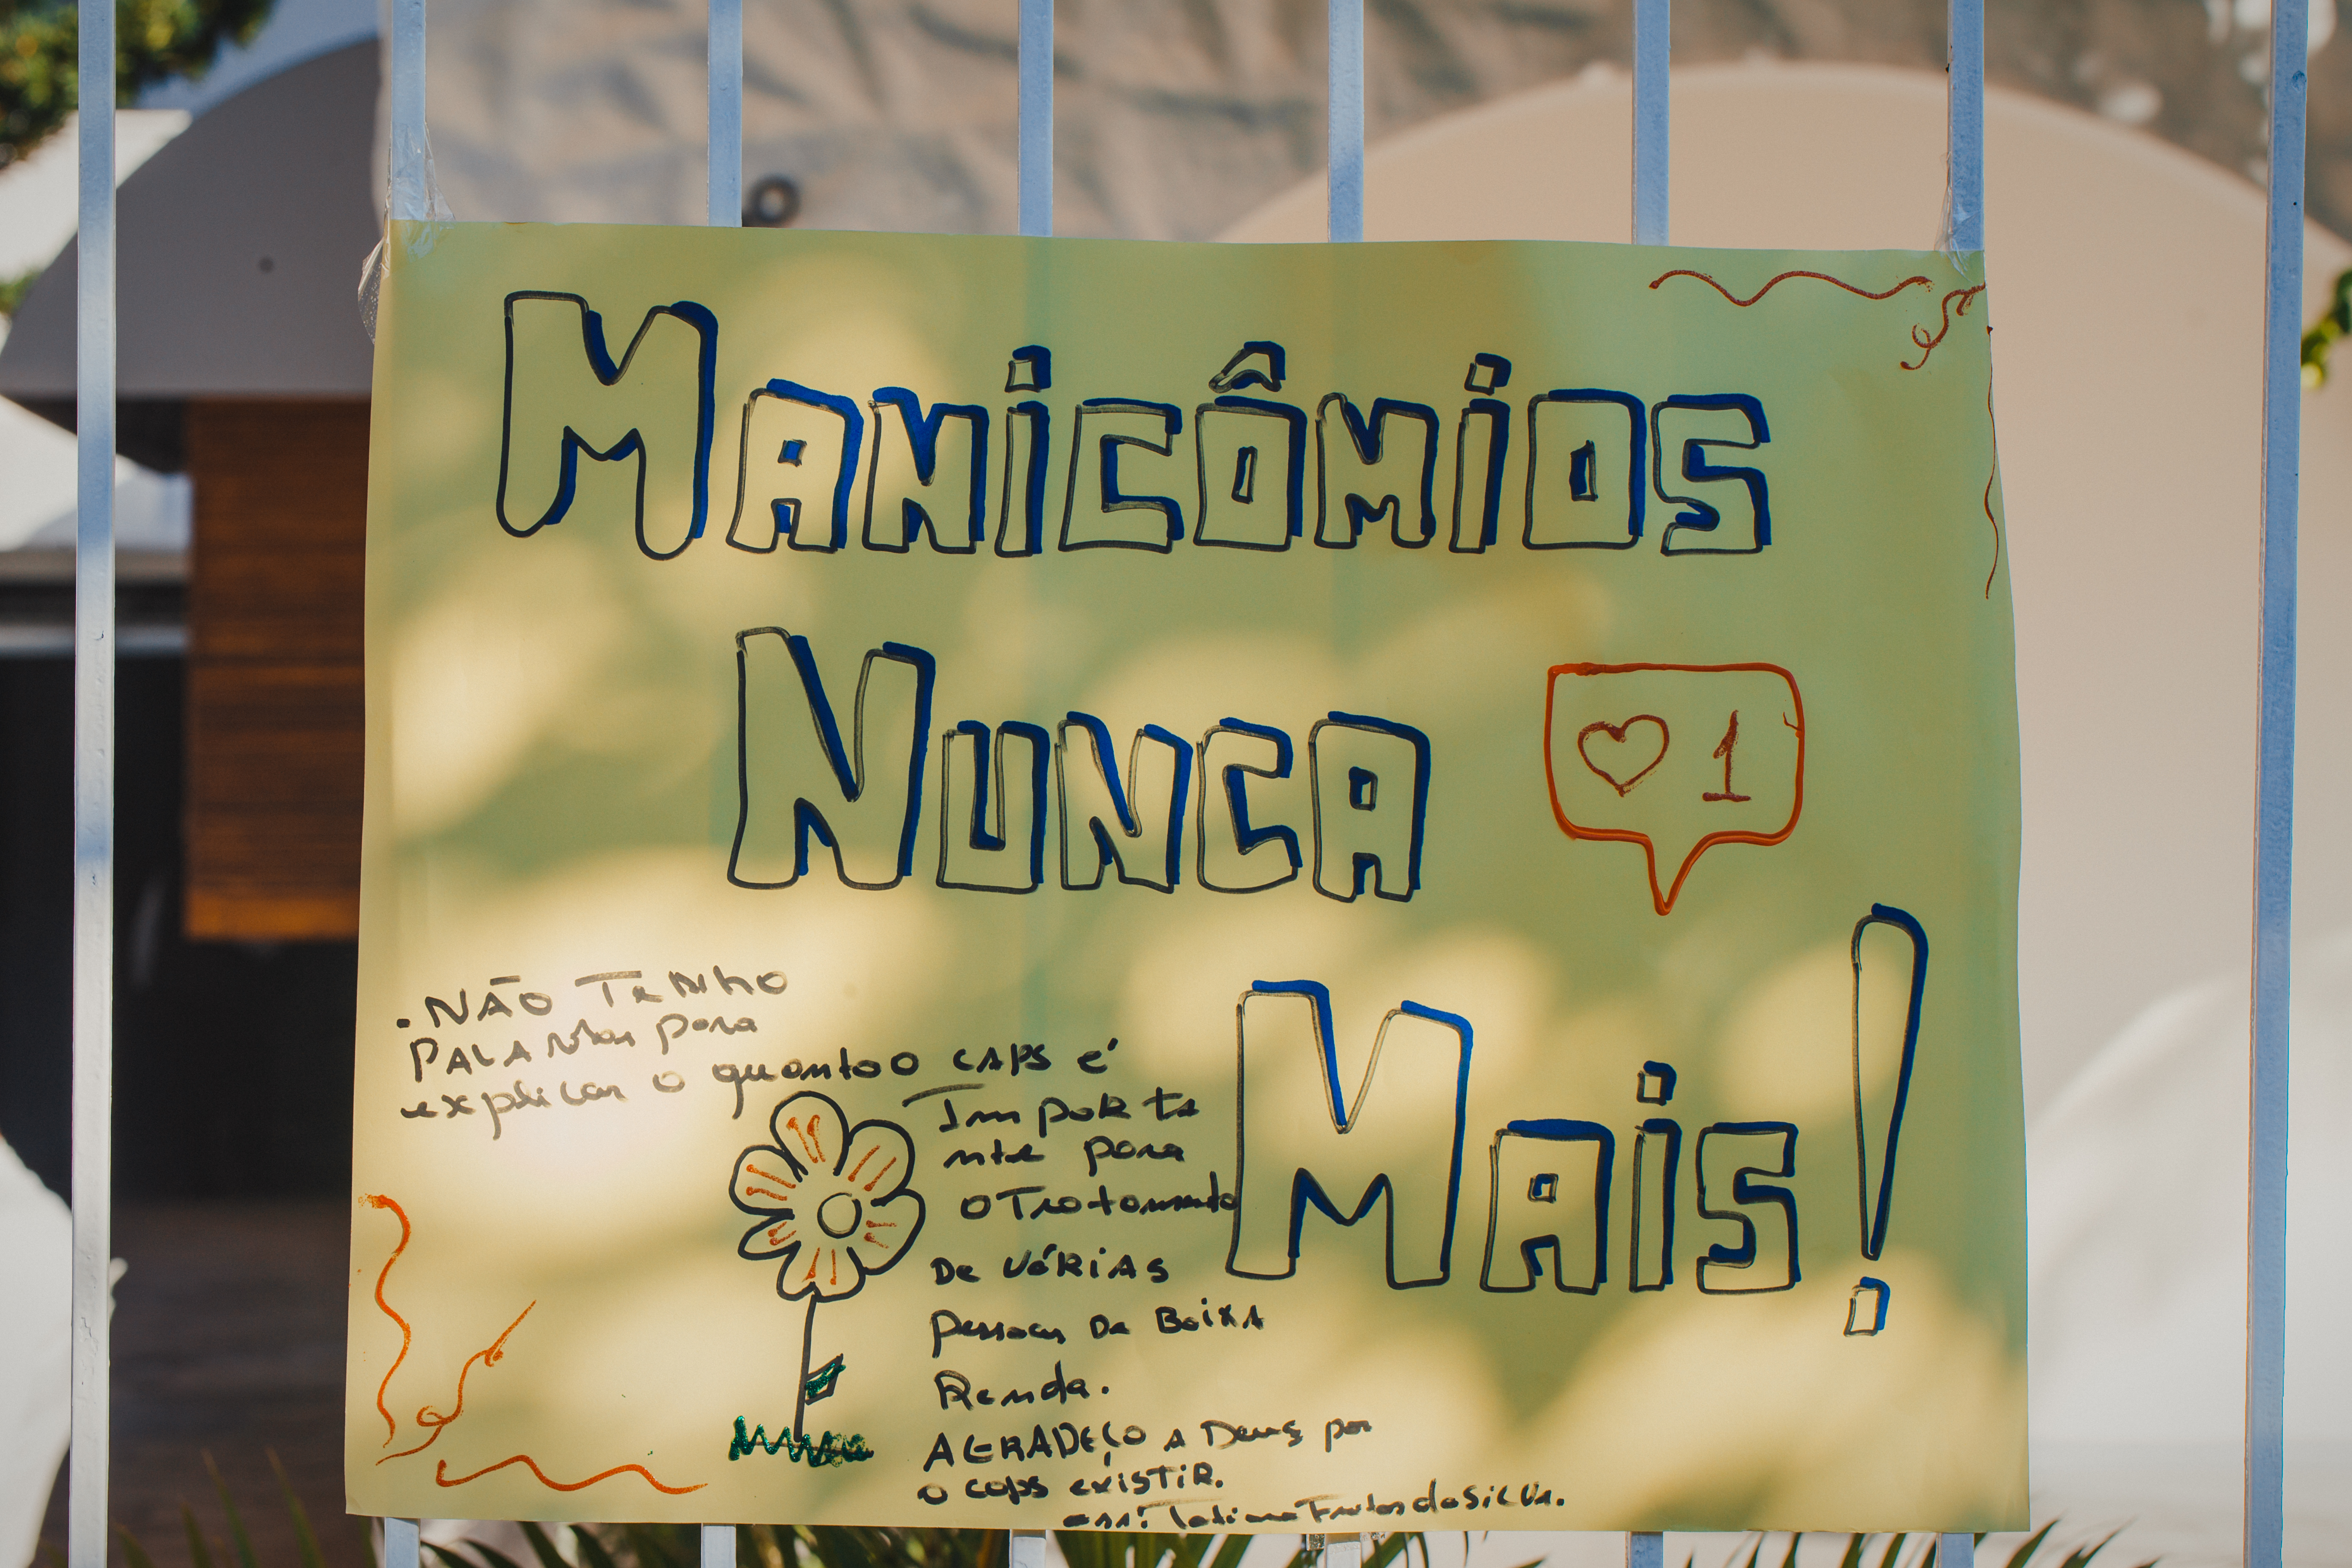 MANICÔMIOS
NUNCA
1
MAIS!
. NÃO TENHO
PALAVRAS para
explicar o quanto o CAPS é
Importa
nte para
o Tratamento
De VÁRIAS
pessoas De BaixA
Renda.
AGRADEÇO A Deus por
o caps existir.
ass: Tatiane da SILVA.